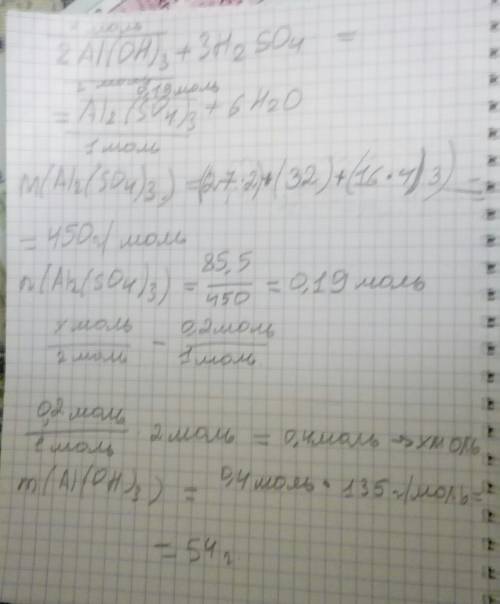 x моль
2Al(OH)3 + 3H2SO4 =
2 моль
0,19 моль
= Al2(SO4)3 + 6H2O
1 моль
M(Al2(SO4)3) = (27·2)+(32)+(16·4)3) =
= 450 г/моль
n(Al2(SO4)3) = 85,5/450 = 0,19 моль
x моль/2 моль – 0,2 моль/1 моль
0,2 моль/1 моль · 2 моль = 0,4 моль → x моль
m(Al(OH)3) = 0,4 моль · 135 г/моль =
= 54 г